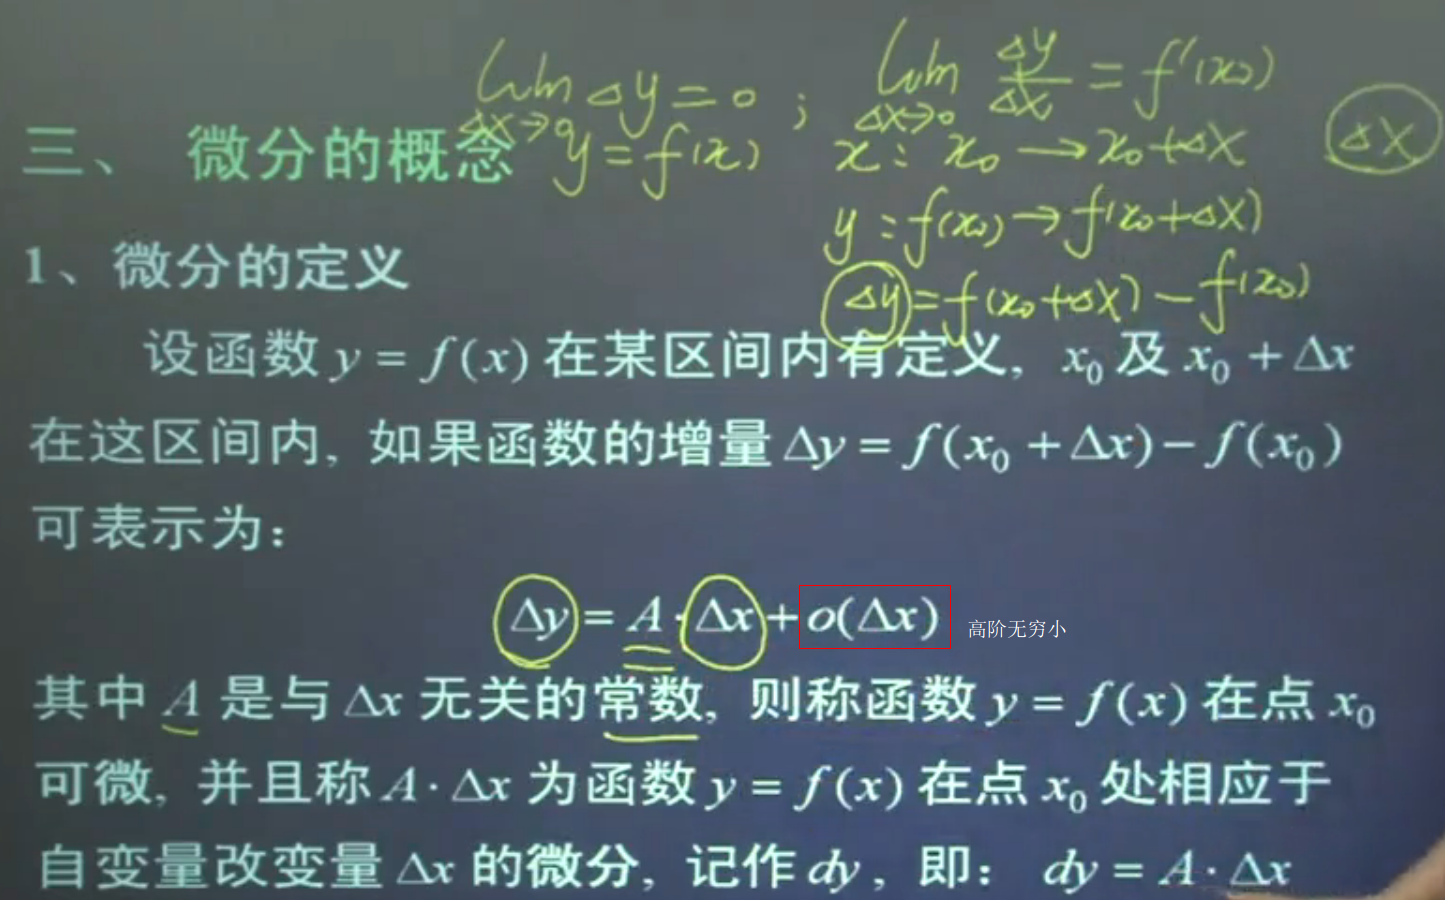 lim Δy = 0 ; lim Δy/Δx = f'(x₀)
Δx→0 Δx→0
三、 微分的概念 y = f(x) x : x₀ → x₀+Δx Δx
y : f(x₀) → f(x₀+Δx)
1、微分的定义
Δy = f(x₀+Δx) − f(x₀)
设函数 y = f(x) 在某区间内有定义, x₀ 及 x₀ + Δx
在这区间内, 如果函数的增量 Δy = f(x₀ + Δx) − f(x₀)
可表示为:
Δy = A · Δx + o(Δx) 高阶无穷小
其中 A 是与 Δx 无关的常数, 则称函数 y = f(x) 在点 x₀
可微, 并且称 A · Δx 为函数 y = f(x) 在点 x₀ 处相应于
自变量改变量 Δx 的微分, 记作 dy, 即: dy = A · Δx